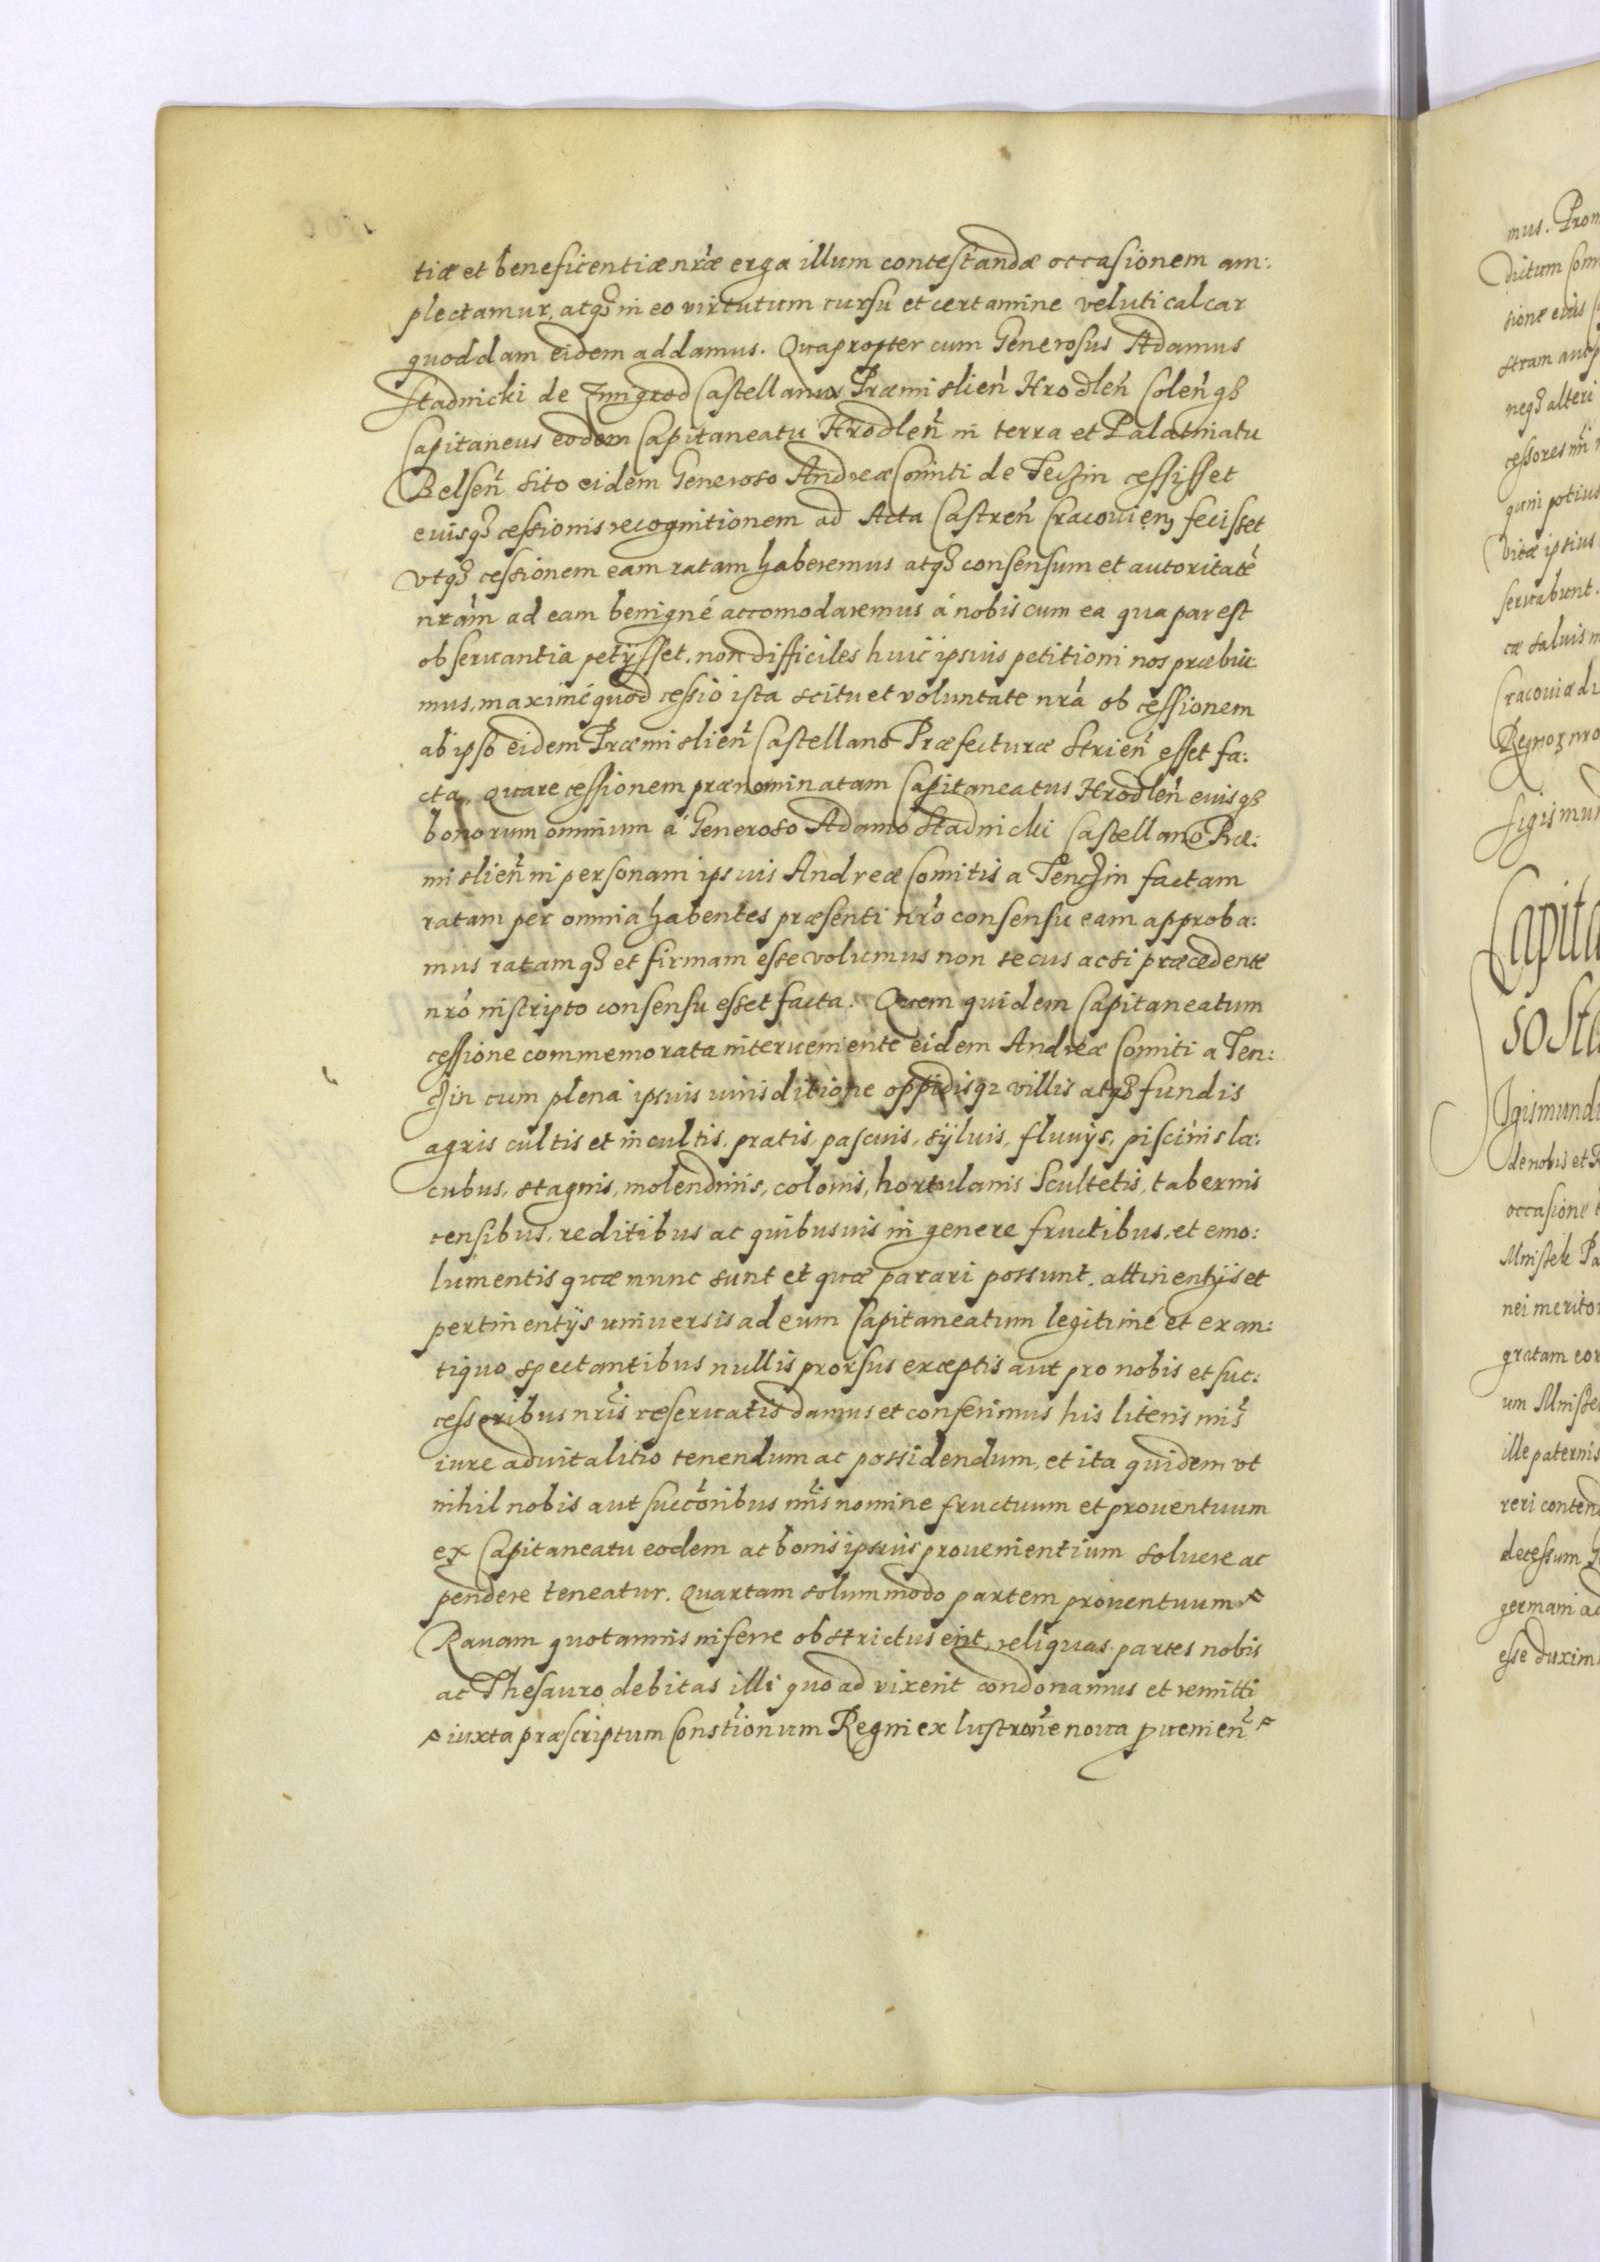 tiæ et beneficentiæ nr̃æ erga illum contestandæ occasionem am:
plectamur, atq₃ in eo virtutum cursu et certamine veluti calcar
quoddam eidem addamus. Quapropter cum Generosus Adamus
Stadnicki de Zmigrod Castellanus Præmislien̄ Hrodlen̄ Colen̄q₃
Capitaneus eodem Capitaneatu Hrodlen̄ in terra et Palatinatu
Belsen̄ sito eidem Generoso Andreæ Comiti de Teczin cessisset
euisq₃ cessionis recognitionem ad Acta Castren̄ Cracouien₃ fecisset
vtq₃ cessionem eam ratam haberemus atq₃ consensum et autoritatē
nrãm ad eam benignè accomodaremus á nobis cum ea qua par est
obseruantia petijsset. non difficiles huic ipsuis petitioni nos præbui:
mus, maximè quod cessio ista scitu et voluntate nrã ob cessionem
ab ipso eidem Præmislien̄ Castellano Præfecturæ Strien̄ esset fa:
cta. Quare cessionem prænominatam Capitaneatus Hrodlen̄ euisq₃
bonorum omnium a Generoso Adamo Stadnicki Castellano Præ:
mislien̄ in personam ipsuis Andreæ Comitis a Tenczin factam
ratam per omnia habentes præsenti nrõ consensu eam approba:
mus ratamq₃ et firmam esse volumus non secus acsi præcedente
nrõ inscripto consensu esset facta. Quem quidem Capitaneatum
cessione commemorata interueniente eidem Andreæ Comiti a Ten:
czin cum plena ipsuis iurisditione oppidisq₃ villis atq₃ fundis
agris cultis et incultis, pratis, pascuis, syluis, fluuijs, piscinis la:
cubus, stagnis, molendinis, colonis, hortulanis Scultetis, tabernis
censibus, reditibus ac quibusuis in genere fructibus, et emo:
lumentis quæ nunc sunt et quæ parari possunt, attinentijs et
pertinentijs uniuersis ad eum Capitaneatum legitimè et ex an:
tiquo spectantibus nullis prorsus exceptis aut pro nobis et suc:
cessoribus nrĩs reseruatis damus et conferimus his literis nrĩs
iure aduitalitio tenendum ac possidendum, et ita quidem, vt
nihil nobis aut succõribus nrĩs nomine fructuum et prouentuum
ex Capitaneatu eodem ac bonis ipsuis prouenientium soluere ac
pendere teneatur. Quartam solummodo partem prouentuum
Rauam quotannis inferre obstrictus erit, reliquas partes nobis
ac Thesauro debitas illi quo ad vixerit condonamus et remitti
iuxta præscriptum Constĩonum Regni ex lustraõne noua ꝓuenien̄
mus. Prom
dictum Com
sione eius
stram aut
neq₃ alteri
cessores nrĩ
quin potius
vitæ ipsius
seruabunt.
cæ saluis
Cracouiæ di
Regnor̃ nro
Sigismun
Capita
so Sta
Sigismundu
de nobis et R
occasione
Mniszek Pa
nei meritor
gratam eor
um Mnisze
ille paternis
reri contend
decessum G
germani ac
esse duxim